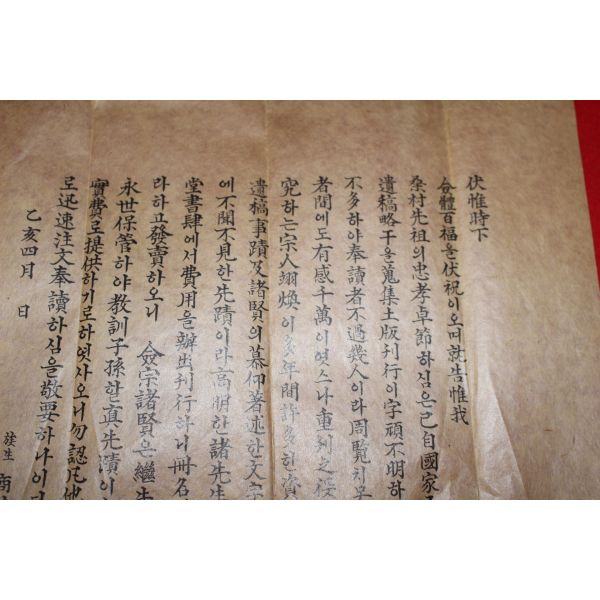 伏惟時下
僉體百福을伏祝이오며就告惟我
桑村先祖의忠孝卓節하심은已自國家
遺稿略干을蒐集土版刊行이字頑不明하
不多하야奉讀者不過幾人이라周覽치무
者間에도有感千萬이연스나重刊之役
究하는宗人翊煥이多年間許多한資
遺稿事蹟及諸賢의慕仰著述한文字
에不聞不見한先蹟이라高明한諸先生
堂書肆에서費用을辦出刊行하니冊名
라하고發賣하오니 僉宗諸賢은繼生
永世保管하야敎訓子孫할眞先蹟이
實費로提供하기로하엿사오니勿認凡他
로迅速注文奉讀하심을敬要하나이다
乙亥四月 日
族生